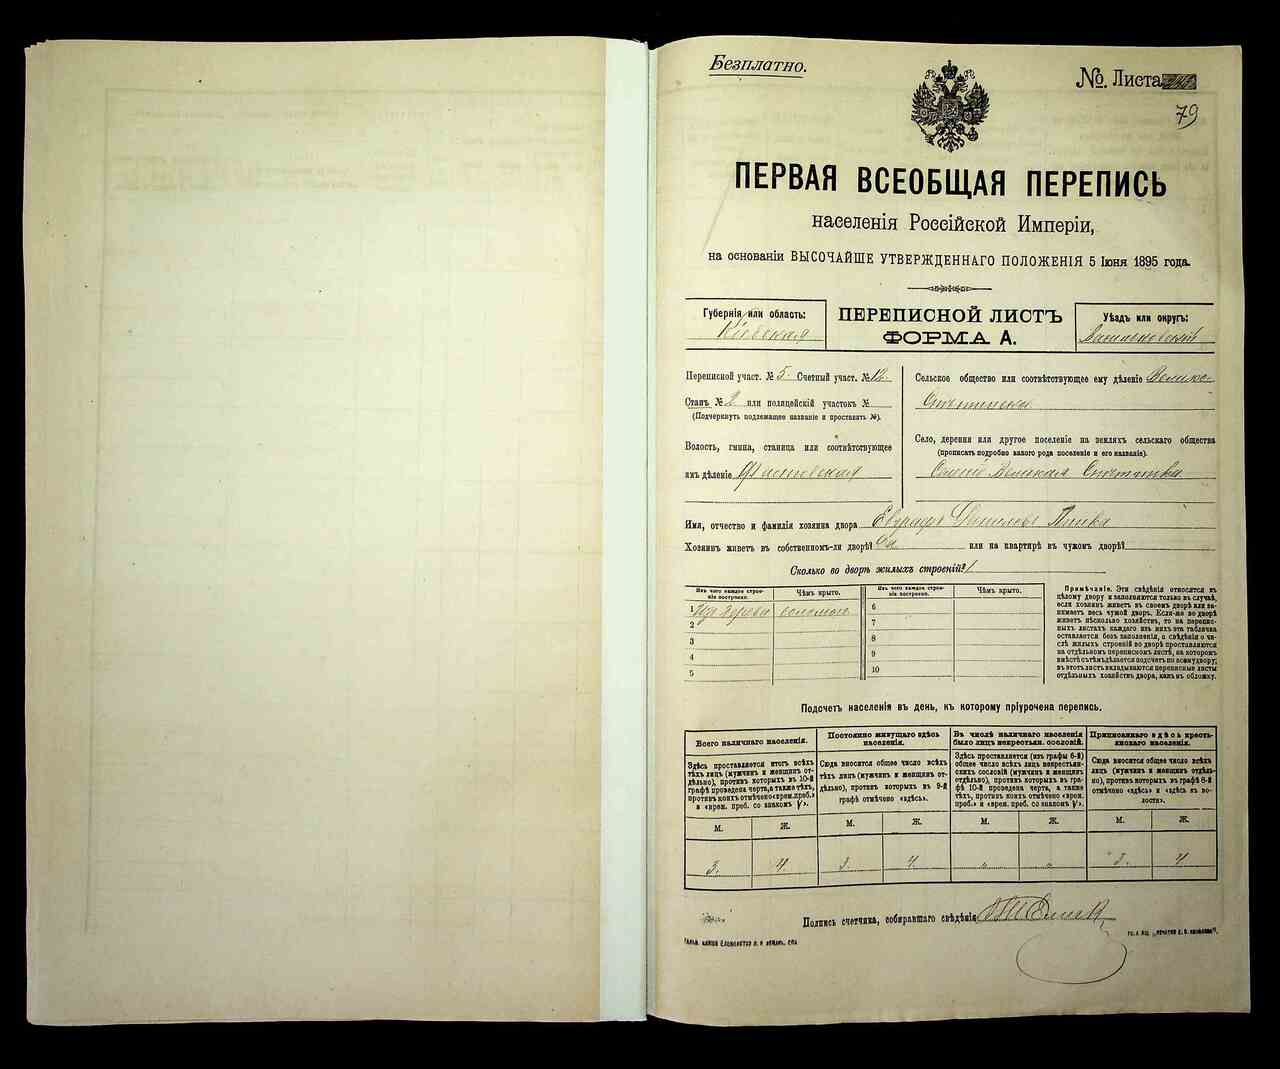 Безплатно.
№ Листа
79
ПЕРВАЯ ВСЕОБЩАЯ ПЕРЕПИСЬ
населенія Россійской Имперіи,
на основаніи ВЫСОЧАЙШЕ УТВЕРЖДЕННАГО ПОЛОЖЕНІЯ 5 Іюня 1895 года.
Губернія или область:
Кіевская
ПЕРЕПИСНОЙ ЛИСТЪ
ФОРМА А.
Уѣздъ или округъ:
Васильковскій
Переписной участ. № 5. Счетный участ. № 12.
Станъ № 2 или полицейскій участокъ №
(Подчеркнуть подлежащее названіе и проставить №).
Волость, гмина, станица или соотвѣтствующее
имъ дѣленіе Фастовская
Сельское общество или соотвѣтствующее ему дѣленіе Велико-
Село, деревня или другое поселеніе на земляхъ сельскаго общества
(прописать подробно какого рода поселеніе и его названіе).
Великая Снѣтинка
Имя, отчество и фамилія хозяина двора Евграфъ
Хозяинъ живетъ въ собственномъ-ли дворѣ? Да или на квартирѣ въ чужомъ дворѣ?
Сколько во дворѣ жилыхъ строеній? 1
Изъ чего каждое строеніе построено.
Чѣмъ крыто.
Изъ чего каждое строеніе построено.
Чѣмъ крыто.
1 Изъ дерева соломою
2
3
4
5
6
7
8
9
10
Примѣчаніе. Эти свѣдѣнія относятся къ
цѣлому двору и заполняются только въ случаѣ,
если хозяинъ живетъ въ своемъ дворѣ или за-
нимаетъ весь чужой дворъ. Если-же во дворѣ
живетъ нѣсколько хозяйствъ, то на перепис-
ныхъ листахъ каждаго изъ нихъ эта табличка
оставляется безъ заполненія, а свѣдѣнія о чи-
слѣ жилыхъ строеній во дворѣ проставляются
на отдѣльномъ переписномъ листѣ, на которомъ
вмѣстѣ съ тѣмъ дѣлается подсчетъ по всему двору;
въ этотъ листъ вкладываются переписные листы
отдѣльныхъ хозяйствъ двора, какъ въ обложку.
Подсчетъ населенія въ день, къ которому пріурочена перепись.
Всего наличнаго населенія.
Постоянно живущаго здѣсь
населенія.
Въ числѣ наличнаго населенія
было лицъ некрестьян. сословій.
Приписаннаго здѣсь кресть-
янскаго населенія.
Здѣсь проставляется итогъ всѣхъ
тѣхъ лицъ (мужчинъ и женщинъ от-
дѣльно), противъ которыхъ въ 10-й
графѣ проведена черта, а также тѣхъ,
противъ коихъ отмѣчено «врем. преб.»
и «врем. преб. со знакомъ V».
Сюда вносится общее число всѣхъ
тѣхъ лицъ (мужчинъ и женщинъ от-
дѣльно), противъ которыхъ въ 9-й
графѣ отмѣчено «здѣсь».
Здѣсь проставляется (изъ графы 6-й)
общее число всѣхъ лицъ некрестьян-
скихъ сословій (мужчинъ и женщинъ
отдѣльно), противъ которыхъ въ
графѣ 10-й проведена черта, а также
тѣхъ, противъ коихъ отмѣчено «врем.
преб.» и «врем. преб. со знакомъ V».
Сюда вносится общее число всѣхъ
лицъ (мужчинъ и женщинъ отдѣль-
но), противъ которыхъ въ графѣ 8-й
отмѣчено «здѣсь» и «здѣсь въ во-
лости».
М. Ж. М. Ж. М. Ж. М. Ж.
3. 4. 3. 4. „ „ 3. 4.
Подпись счетчика, собиравшаго свѣдѣнія